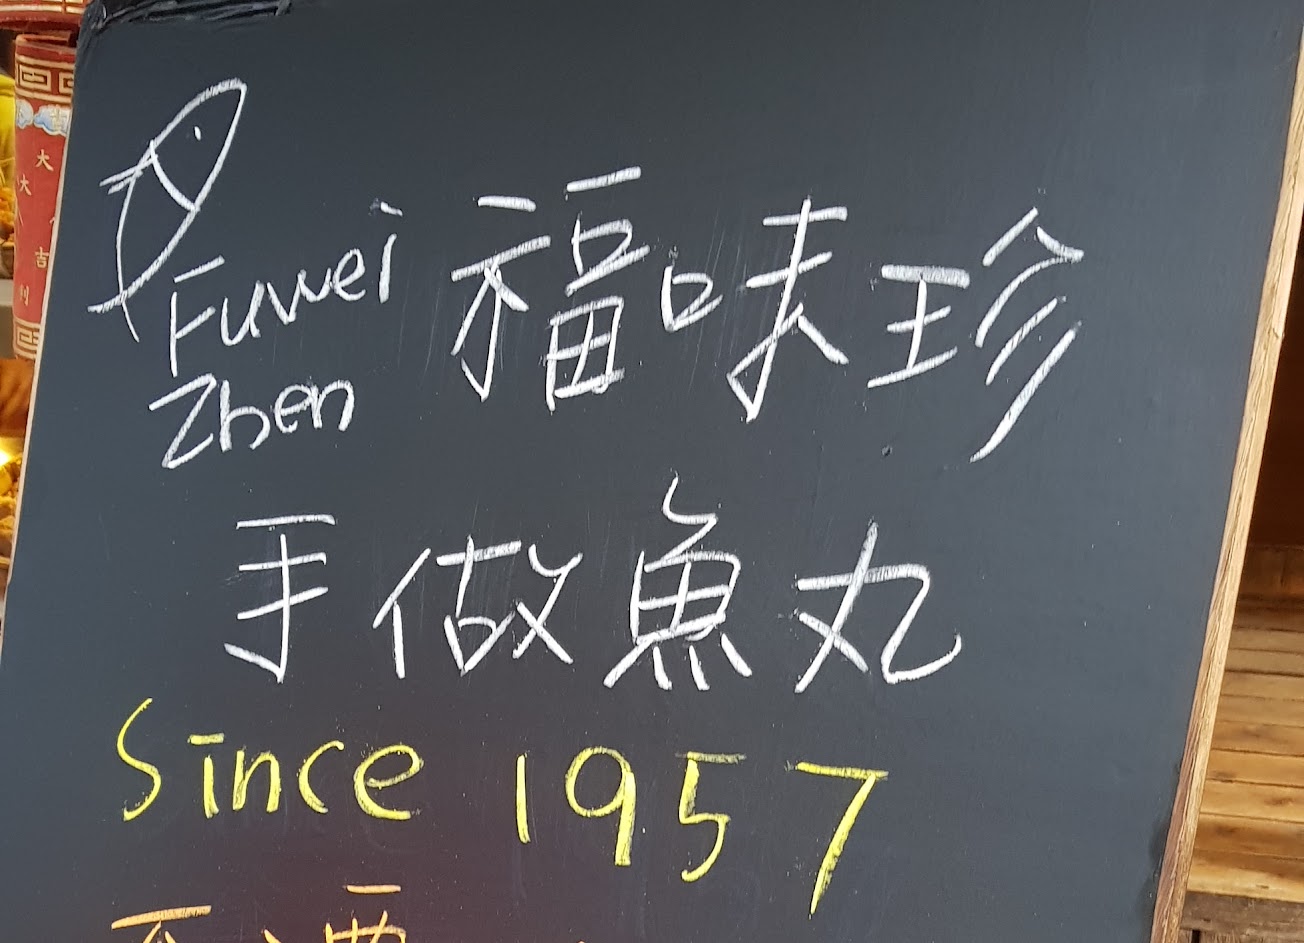 Fuwei 福味珍
Zhen
手做魚丸
Since 1957